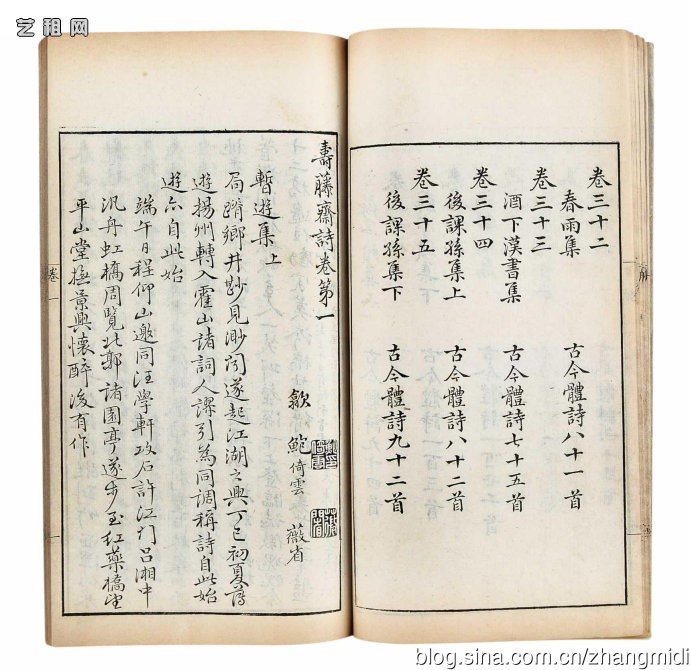 艺租网
卷三十二
春雨集 古今體詩八十一首
卷三十三
酒下漢書集 古今體詩七十五首
卷三十四
後課孫集上 古今體詩八十二首
卷三十五
後課孫集下 古今體詩九十二首
壽藤齋詩卷第一
歙 鮑倚雲 薇省
暫遊集上
局蹐鄉井尠見渺聞遂起江湖之興丁巳初夏薄
遊揚州轉入霍山諸詞人謬引為同調稱詩自此始
遊亦自此始
端午日程仰山邀同汪學軒政石許江門呂湘中
汎舟虹橋周覽北郭諸園亭遂步至紅藥橋望
平山堂撫景興懷醉後有作
卷一
blog.sina.com.cn/zhangmidi